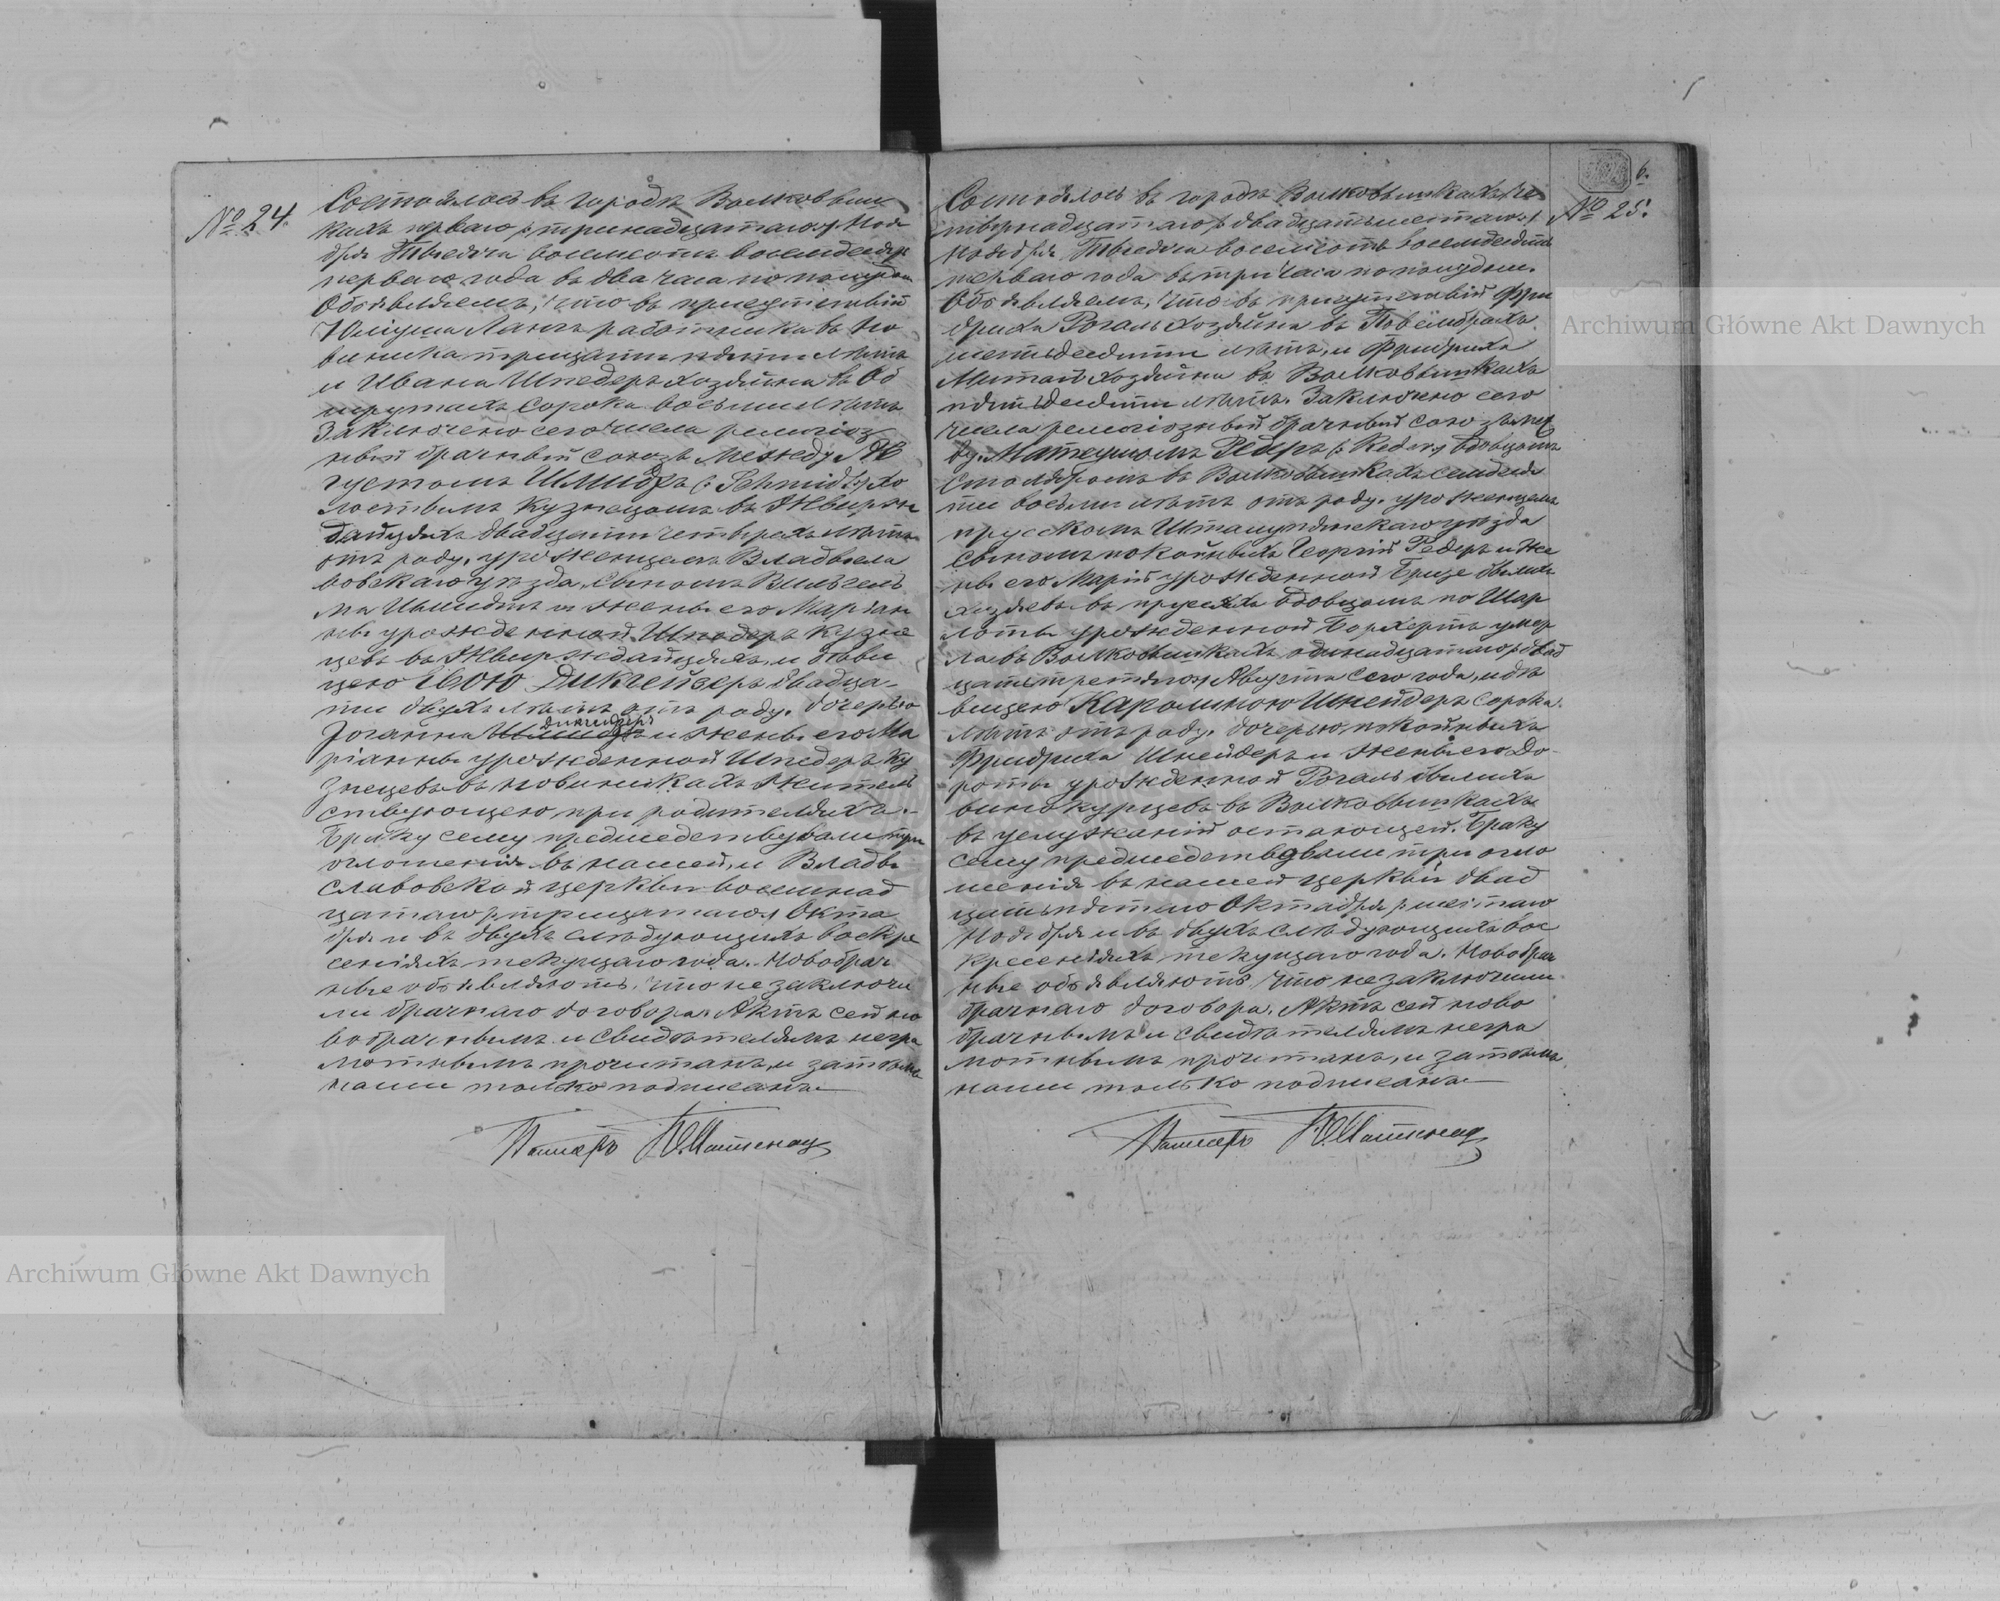 № 24.
Состоялось въ городѣ Волковыш
кахъ перваго (: тринадцатаго:) Ноя
бря тысяча восемьсотъ восемдесятъ
перваго года въ два часа по полудни
Объявляемъ, что въ присутствіи
Юліуша Лангъ работника въ Но
виника тридцати пяти лѣтъ
и Ивана Шнедеръ хозяина въ Об
шрутахъ сорока восьми лѣтъ
Заключено сего числа религіоз
ный брачный союзъ между Ав
густомъ Шмидтъ (: Schmidt:) хо
лостымъ кузнецомъ въ Жвирж
дайцяхъ двадцати четырехъ лѣтъ
отъ роду, уроженцемъ Владысла
вовскаго уѣзда, сыномъ Вильгель
ма Шмидтъ и жены его Маріан
ны урожденной Шнедеръ кузне
цевъ въ Жвирждайцяхъ, и дѣви
цею Евою Дикгейзеръ двадца-
ти двухъ лѣтъ отъ роду, дочерью
дикгейзеръ
Іоганна и жены его Ма
ріанны урожденной Шнедеръ ку
знецевъ въ новиникахъ житель
ствующею при родителяхъ.-
Браку сему предшедствували три
оглошенія въ нашей, и Влады
славовской церквы восемнад
цатаго (: тридцатаго:) Октя
бря и въ двухъ слѣдующихъ воскре
сеніяхъ текущаго года. Новобрач
ные объявляютъ, что не заключи
ли брачнаго договора. Актъ сей но
вобрачнымъ и свидѣтелямъ негра
мотнымъ прочитанъ, и затѣмъ
нами только подписанъ.—
Пасторъ
6.
№ 25.
Состоялось въ городѣ Волковышкахъ че
тырнадцатаго (: двадцатьшестаго:)
Ноября тысяча восемсотъ восемдесятъ
перваго года въ три часа по полудни.
Объявляемъ, что въ присутствіи Фри
дриха Рогаль хозяина въ Повембрахъ
шестьдесяти лѣтъ, и Фридриха
Матай хозяина въ Волковышкахъ
пятьдесяти лѣтъ. Заключено сего
числа религіозный брачный союзъ меж
ду Матеушомъ Редеръ (: Reder:) вдовцомъ
столяромъ въ Волковышкахъ семдеся
ти восьми лѣтъ отъ роду, уроженцемъ
прусскомъ Шталупянскаго уѣзда
сыномъ покойныхъ Георгій Редеръ и же
ны его Маріи урожденной Бризе бывшихъ
хозяевъ въ пруссяхъ вдовцомъ по Шар
лоты урожденной Борхертъ умер
ла въ Волковышкахъ одинадцатаго (: двад
цатьтретяго:) Августа сего года, и дѣ
вицею Каролиною Шнейдеръ сорока
лѣтъ отъ роду, дочерью покойныхъ
Фридриха Шнейдеръ и жены его До-
роты урожденной Рогаль бывшихъ
винокурцевъ въ Волковышкахъ
въ услужаніи остающей. Браку
сему предшедствовали три огло
шенія въ нашей церквы двад
цатьпятаго Октября (: шестаго
Ноября и въ двухъ слѣдующихъ вос
кресеніяхъ текущаго года. Новобрач
ные объявляютъ что не заключили
брачнаго договора. Актъ сей ново
брачнымъ и свидѣтелямъ негра
мотнымъ прочитанъ, и затѣмъ
нами только подписанъ.—
Пасторъ
Archiwum Główne Akt Dawnych
Archiwum Główne Akt Dawnych